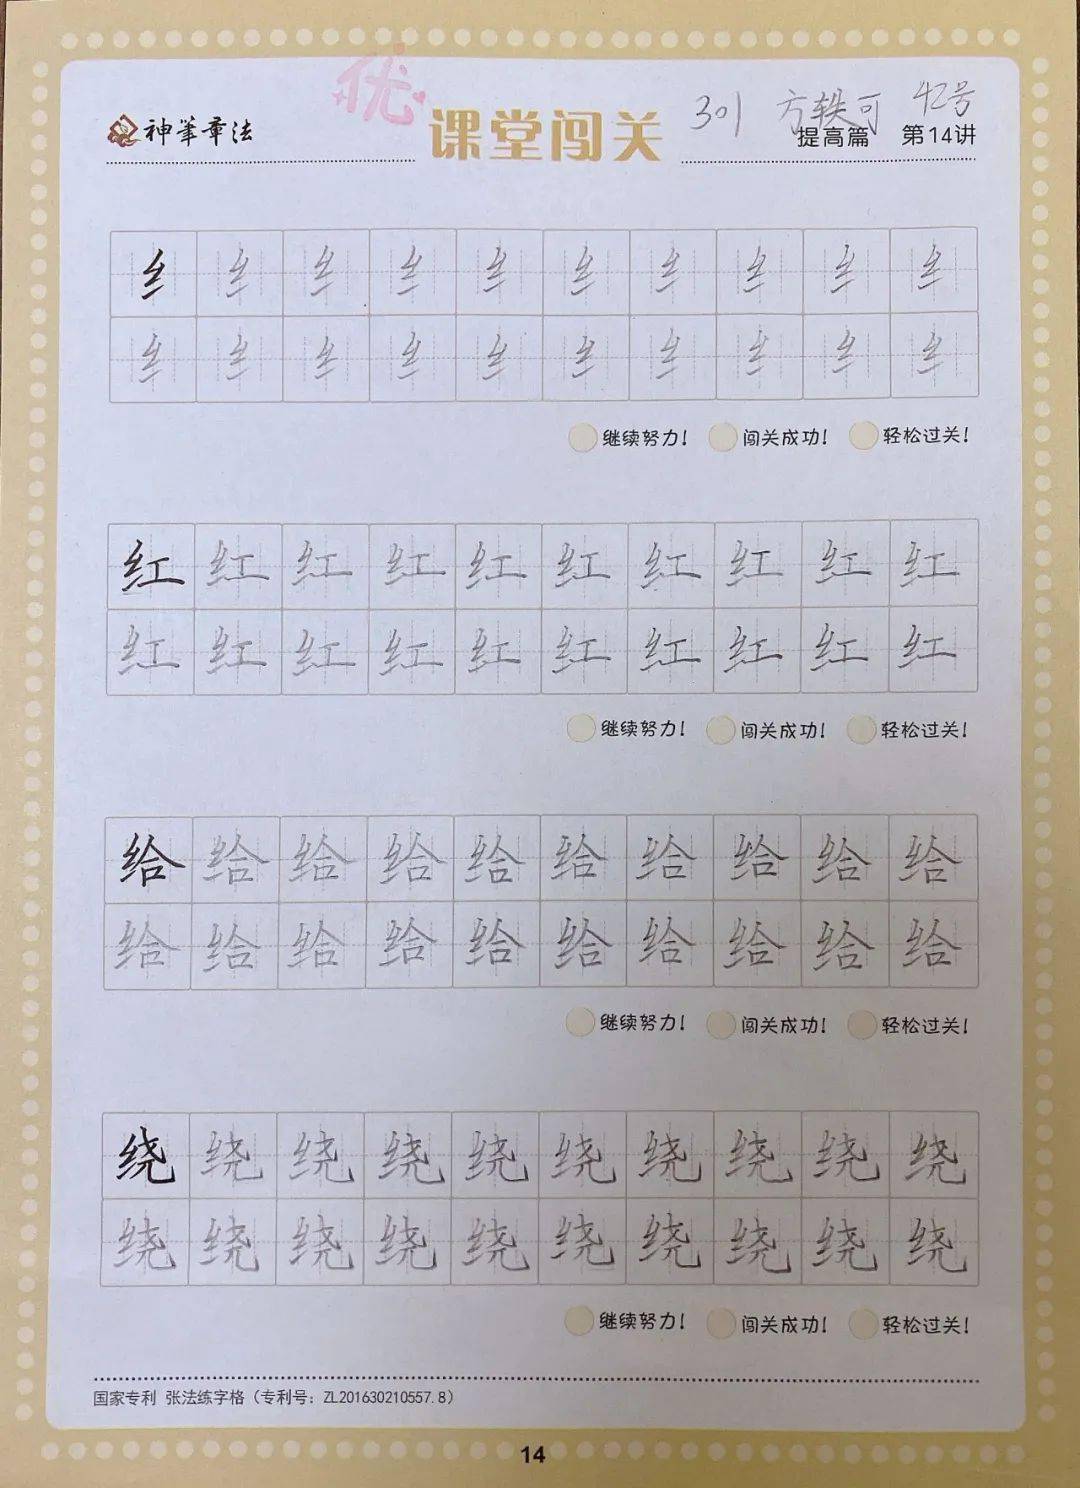 优
神筆章法 课堂闯关 301 方轶可 42号
提高篇 第14讲
纟 纟 纟 纟 纟 纟 纟 纟 纟 纟
纟 纟 纟 纟 纟 纟 纟 纟 纟 纟
继续努力! 闯关成功! 轻松过关!
红 红 红 红 红 红 红 红 红 红
红 红 红 红 红 红 红 红 红 红
继续努力! 闯关成功! 轻松过关!
给 给 给 给 给 给 给 给 给 给
给 给 给 给 给 给 给 给 给 给
继续努力! 闯关成功! 轻松过关!
绕 绕 绕 绕 绕 绕 绕 绕 绕 绕
绕 绕 绕 绕 绕 绕 绕 绕 绕 绕
继续努力! 闯关成功! 轻松过关!
国家专利 张法练字格（专利号：ZL201630210557.8）
14